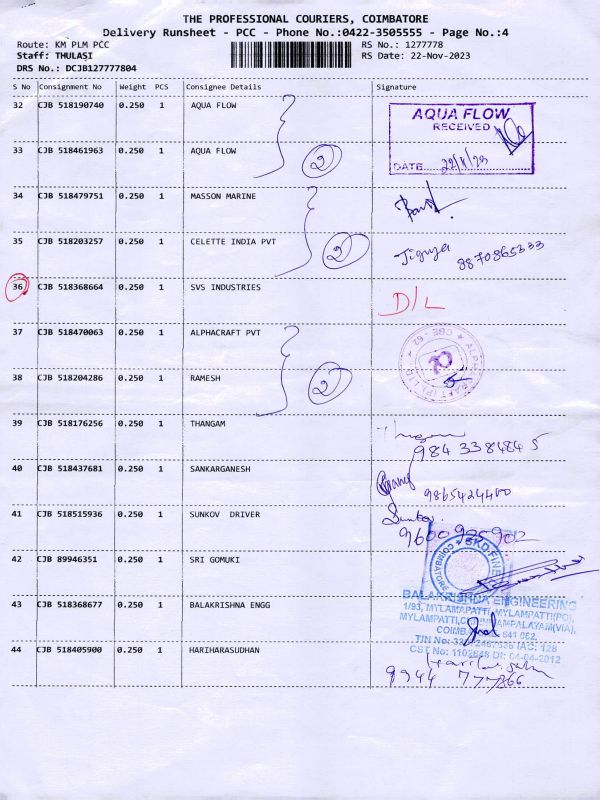 THE PROFESSIONAL COURIERS, COIMBATORE
Delivery Runsheet - PCC - Phone No.:0422-3505555 - Page No.:4
Route: KM PLM PCC
RS No.: 1277778
Staff: THULASI
RS Date: 22-Nov-2023
DRS No.: DCJB127777804
S No Consignment No Weight PCS Consignee Details Signature
32 CJB 518190740 0.250 1 AQUA FLOW
AQUA FLOW
RECEIVED
DATE
33 CJB 518461963 0.250 1 AQUA FLOW 2
34 CJB 518479751 0.250 1 MASSON MARINE
35 CJB 518203257 0.250 1 CELETTE INDIA PVT 2
8870865333
36 CJB 518368664 0.250 1 SVS INDUSTRIES D/L
37 CJB 518470063 0.250 1 ALPHACRAFT PVT
38 CJB 518204286 0.250 1 RAMESH 2
39 CJB 518176256 0.250 1 THANGAM
984 338484 5
40 CJB 518437681 0.250 1 SANKARGANESH
9865424400
41 CJB 518515936 0.250 1 SUNKOV DRIVER
9600925902
42 CJB 89946351 0.250 1 SRI GOMUKI
COIMBATORE
43 CJB 518368677 0.250 1 BALAKRISHNA ENGG
BALAKRISHNA ENGINEERING
1/93, MYLAMAPATTI, MYLAMPATTI(PO),
44 CJB 518405900 0.250 1 HARIHARASUDHAN
9944 777266